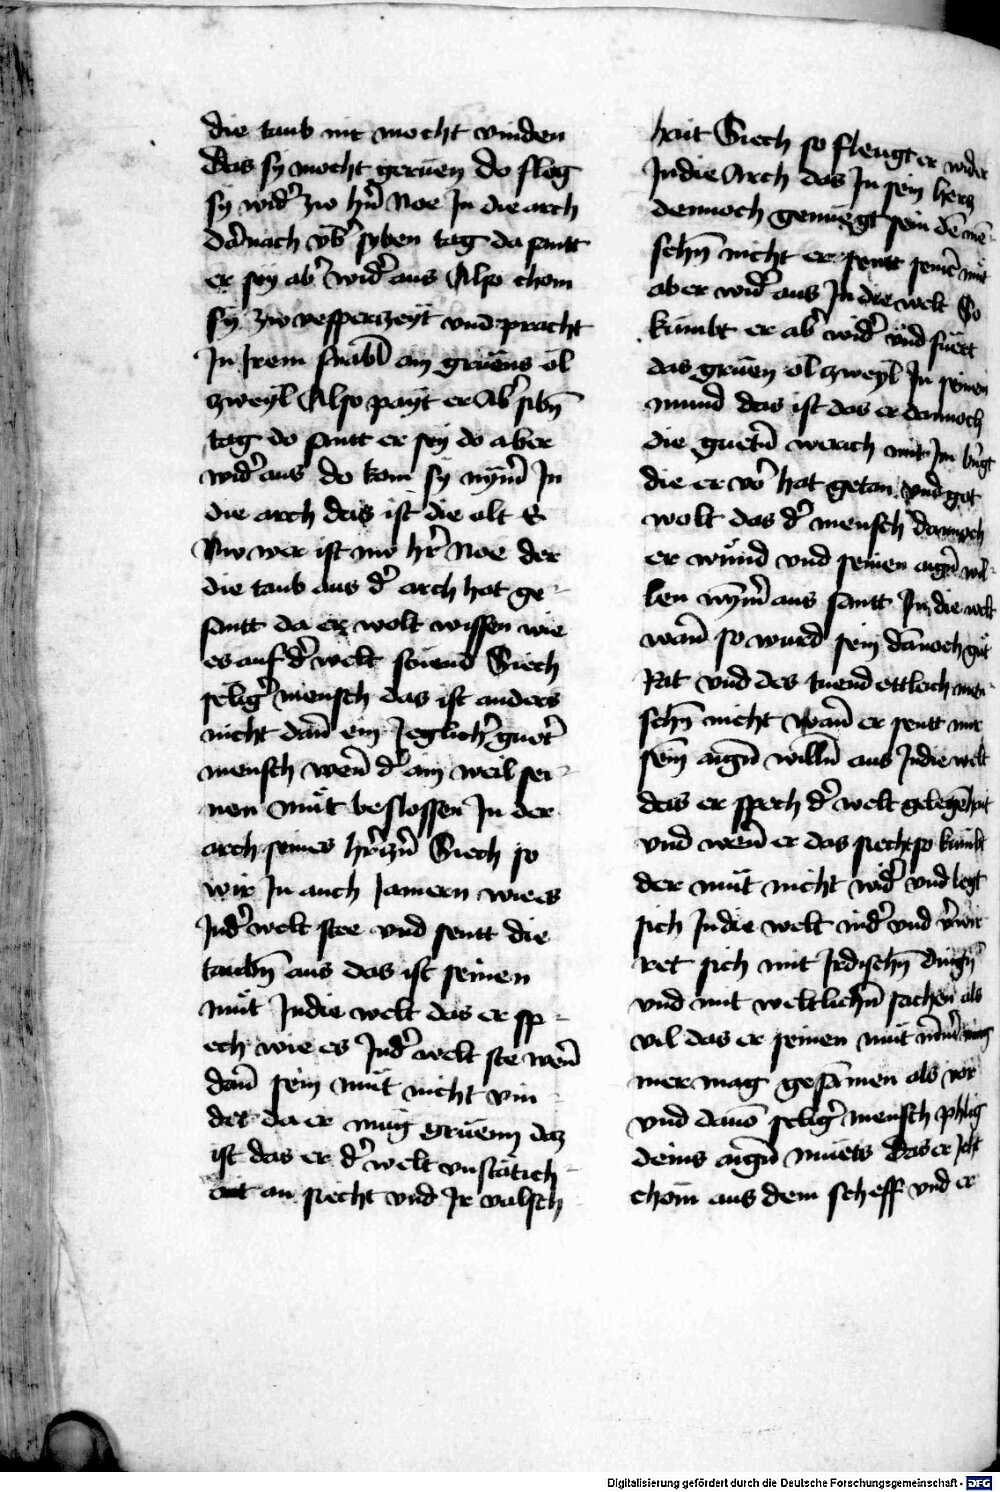 die taub nit mocht vinden
das sy mocht gerüen do flog
sy widˀ zw hˀn Noe In die arch
dˀnach vbˀ syben tag da santt
er sey abˀ widˀ aus Also chom
sy zw vesperczeyt vnd pracht
In Irem snabl ain grüens öl
zweyl Also payt er Abˀ sibn̄
tag do santt er sey do aber
widˀ aus do kom sy nym̄ˀ In
die arch das ist die alt E
Nw wer ist nw hˀr Noe der
die taub aus dˀ arch hat ge-
santt da er wolt wissen wie
es auf dˀ welt stuend Siech
seligˀ mensch das ist anders
nicht dan̄ ein Jeglichˀ guetˀ
mensch wen̄ dˀ ain weil sei-
nen müt beslossen In der
arch seines hˀrczn̄ Siech so
wir In auch Jamern wie es
Indˀ welt stee vnd sentt die
taubn̄ aus das ist seinen
müt Indie welt das er sp-
ech wie es Indˀ welt ste wen̄
dan̄ sein müt nicht vin-
det da er müg grüenn daz
ist das er dˀ welt vnstätich-
ait an siecht vnd Ir valsch
hait Siech so fleugt er wider
Indie Arch das In sein hercz
dennoch genüegt sein dē mē-
schn̄ nicht er sentt seinē müt
aber widˀ aus In die welt So
kumbt er abˀ widˀ vnd füert
das grüen öl zweyl In seinen
mund das ist das er dannoch
die guetn̄ werich mit Im bˀigt
die er vor hat getan vnd got
wolt das dˀ mensch dannoch
er wünd vnd seinen aign̄ wil-
len nym̄ˀ aus santt In die welt
wan̄ so wurd sein dānoch güt
Rat vnd des tuend ettleich men
schn̄ nicht wan̄ er sentt nur
sein aign̄ willn̄ aus Indie welt
das er spech dˀ welt gelegēhait
vnd wen̄ er das siecht so kumbt
der müt nicht widˀ vnd legt
sich Indie welt nidˀ vnd vˀwir
ret sich mit Irdischn̄ dingn̄
vnd mit weltlichn̄ sachen als
vil das er seinen müt nȳmˀ
mer mag gesāmen als vor
vnd dauō seligˀ mensch phlig
deins aign̄ müets Das er Icht
chöm aus dem scheff vnd er